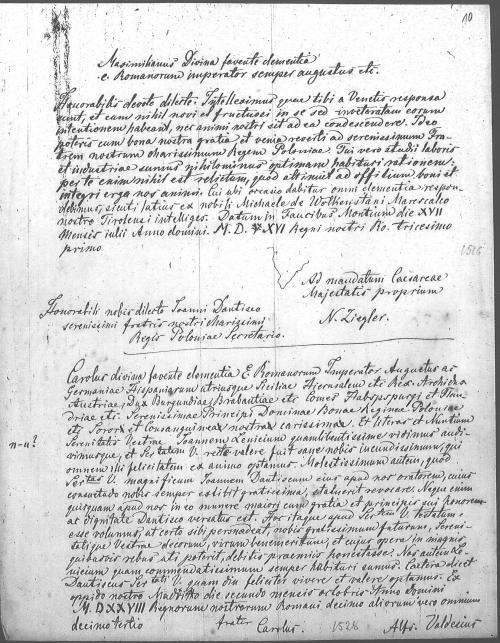 10
Maximilianus Divina favente clementia
e. Romanorum imperator semper augustus etc.
Honorabilis devote dilecte. Intelleximus quae tibi a Venetis responsa
sunt, et cum nihil novi et fructuosi in se sed inveteratam eorum
intentionem habeant, nec animi nostri sit ad ea condescendere. Ideo
poteris cum bona nostra gratia et venia reverti ad serenissimum Fra-
trem nostrum charissimum Regem Poloniae. Tui vero studii laboris
et industriae sumus nihilominus optimam habituri rationem:
per te enim nihil est relictum, quod attinuit ad officium boni et
integri erga nos animi. Cui ubi occasio dabitur omni clementia respon
debimus, sicuti latius ex nobili Michaele de Wolkenstani Marescalco
nostro Tirolensi intelliges. Datum in Faucibus Montium die XVII
Mensis iulii Anno domini. M.D.XVI Regni nostri Ro. tricesimo
primo
1516
Ad mandatum Caesareae
Majestatis proprium
N. Ziegler.
Honorabili nobis dilecto Ioanni Dantisco
serenissimi fratris nostri charissimi
Regis Poloniae Secretario.
Carolus divina favente clementia E. Romanorum Imperator Augustus ac
Germaniae Hispaniarum utriusque Siciliae Hierusalem etc Rex. Archidux
Austriae, Dux Burgundiae, Brabantiae etc Comes Habspurgi et Flan
driae etc. Serenissimae Principi Dominae Bonae Reginae Poloniae
etc Sorori et Consanguineae nostrae carissimae. Et literas et Nuntium
n-u?
Serenitatis Vestrae Ioannem Zenicium quam libentissime vidimus audi-
vimusque, et Sertatem V. recte valere fuit sane nobis iucundissimum, qui
omnem illi felicitatem ex animo optamus. Molestissimum autem, quod
Sertas V. magnificum Ioannem Dantiscum eius apud nos oratorem, cuius
consuetudo nobis semper extitit gratissima, statuerit revocare. Neque enim
quisquam apud nos in eo munere maiori cum gratia et principis sui honorem
ac dignitate Dantisco versatus est. Hor itaque apud Sertem V. testatum
esse volumus, ac certo sibi persuadeat, nobis gratissimum futurum, Sereni-
tatique Vestrae decorum, virum benemeritum, et cujus opera in magnis
quibusvis rebus uti poterit, debitis praemiis honestasse. Nos autem Ze-
nicium quam commendatissimum semper habituri sumus. Caetera dicet
Dantiscus Sertati V. quam diu feliciter vivere et valere optamus. Ex
oppido nostro Madritio die secundo mensis octobris Anno domini
M.DXXVIII Regnorum nostrorum Romani decimo aliorum vero omnium
decimo tertio
frater
Carolus.
1528
Alfs. Valdesius